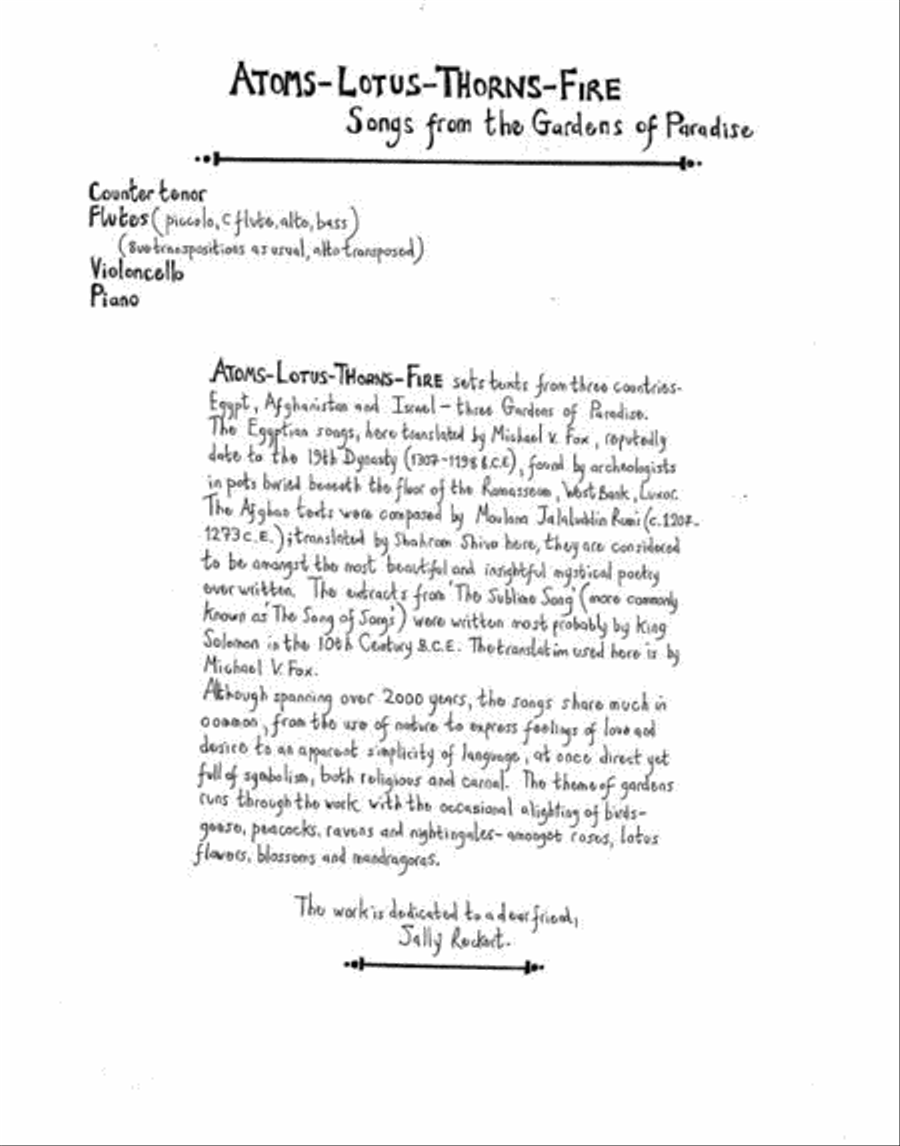 ATOMS-LOTUS-THORNS-FIRE
Songs from the Gardens of Paradise
Counter tenor
Flutes (piccolo, C flute, alto, bass)
(8ve transpositions as usual, alto transposed)
Violoncello
Piano
ATOMS-LOTUS-THORNS-FIRE sets texts from three countries-
Egypt, Afghanistan and Israel - three Gardens of Paradise.
The Egyptian songs, here translated by Michael V. Fox, reputedly
date to the 19th Dynasty (1307-1198 B.C.E), found by archeologists
in pots buried beneath the floor of the Ramasseum, West Bank, Luxor.
The Afghan texts were composed by Moulana Jalaluddin Rumi (c.1207-
1273 C.E.); translated by Shahram Shiva here, they are considered
to be amongst the most beautiful and insightful mystical poetry
ever written. The extracts from 'The Sublime Song' (more commonly
known as 'The Song of Songs') were written most probably by King
Solomon in the 10th Century B.C.E. The translation used here is by
Michael V. Fox.
Although spanning over 2000 years, the songs share much in
common, from the use of nature to express feelings of love and
desire to an apparent simplicity of language, at once direct yet
full of symbolism, both religious and carnal. The theme of gardens
runs through the work with the occasional alighting of birds-
geese, peacocks, ravens and nightingales- amongst roses, lotus
flowers, blossoms and mandragoras.
The work is dedicated to a dear friend,
Sally